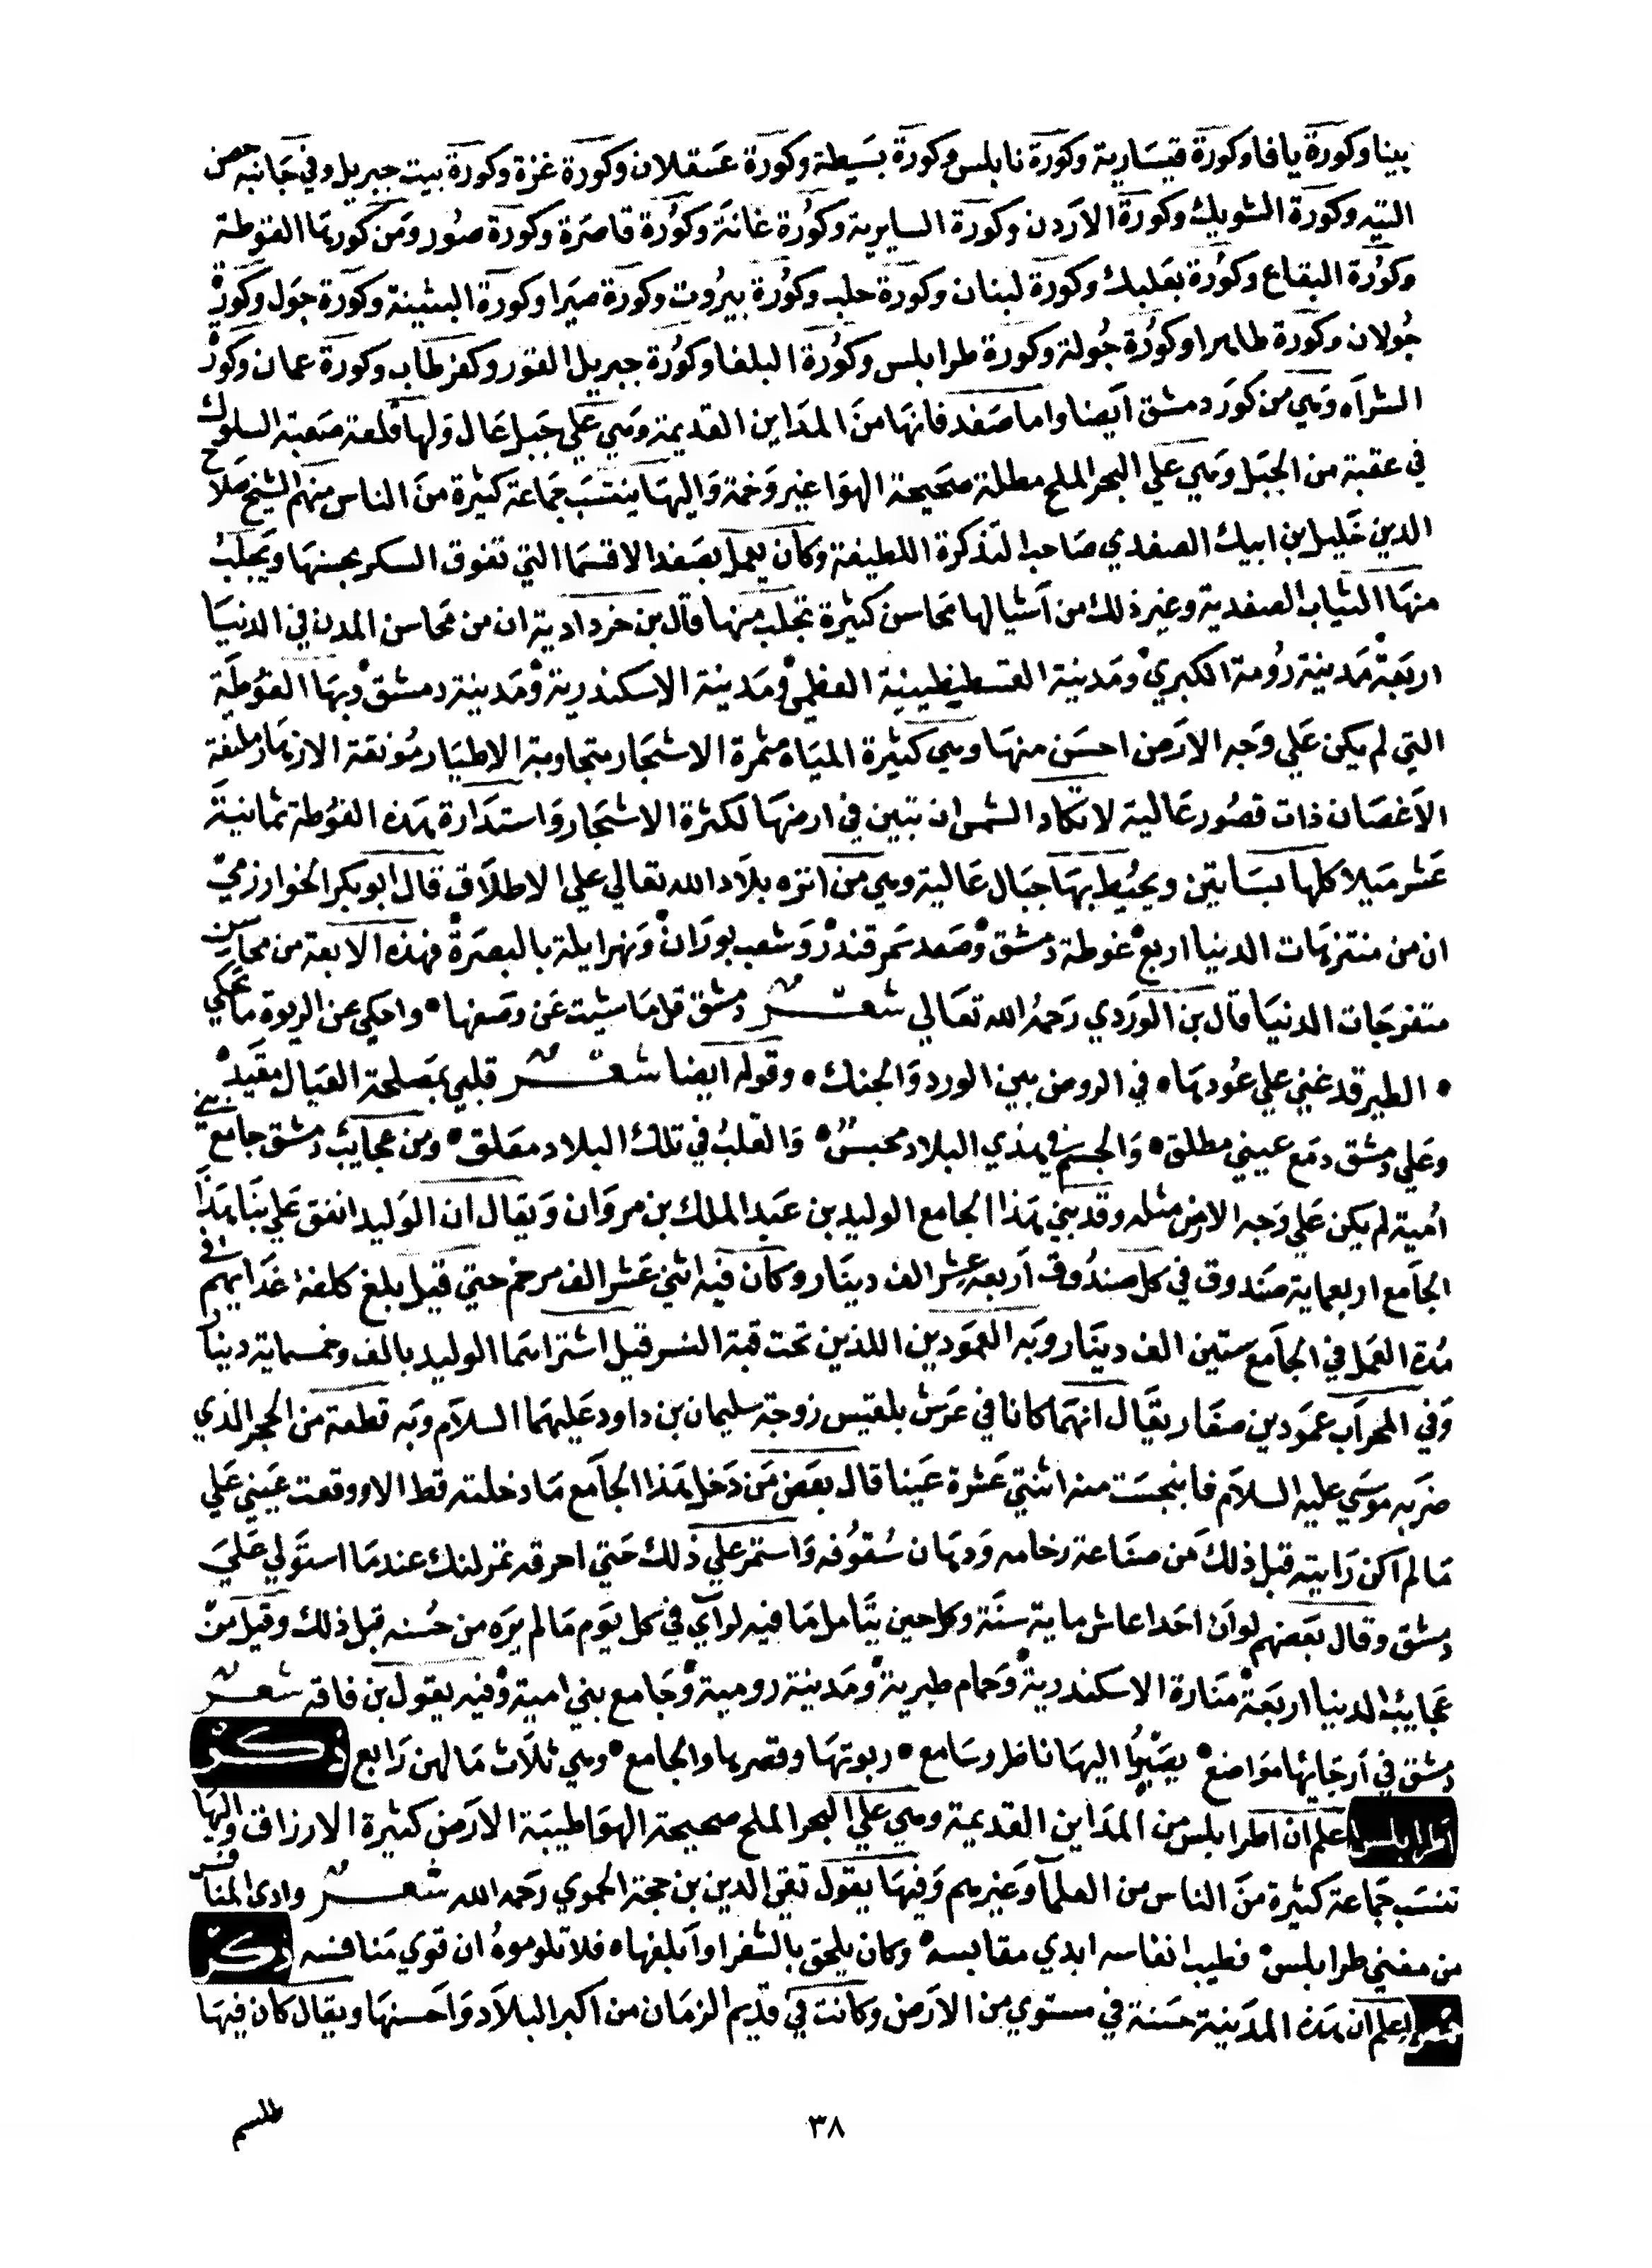 يبنا وكورة يافا وكورة قيسارية وكورة نابلس وكورة بسيطة وكورة عسقلان وكورة غزة وكورة بيت جبريل وفي جانبه حصن
التيه وكورة الشوبك وكورة الاردن وكورة السايرية وكورة غانة وكورة قاصرة وكورة صور ومن كورتها الغوطة
وكورة البقاع وكورة بعلبك وكورة لبنان وكورة حلب وكورة بيروت وكورة صيرا وكورة البثينة وكورة جول وكورة
جولان وكورة طاهرا وكورة جولة وكورة طرابلس وكورة البلفا وكورة جبريل الغور وكفر طاب وكورة عمان وكورة
الشراه وهي من كور دمشق ايضا واما صفد فانها من المداين القديمة وهي علي جبل عال ولها قلعة صعبة السلوك
في عقبة من الجبل وهي علي البحر الملح مطلة صحيحة الهوا غير وخمة واليها ينتسب جماعة كثيرة من الناس منهم الشيخ صلاح
الدين خليل بن ايبك الصفدي صاحب التذكرة اللطيفة وكان يعمل بصفد الاقسما التي تفوق السكر بحسنها ويجلب
منها الثياب الصفدية وغير ذلك من اشيا لها محاسن كثيرة تجلب منها قال بن خردادية ان من محاسن المدن في الدنيا
اربعة مدينة رومة الكبري ومدينة القسطيطينية العظمي ومدينة الاسكندرية ومدينة دمشق وبها الغوطة
التي لم يكن علي وجه الارض احسن منها وهي كثيرة المياه مثمرة الاشجار متجاوبة الاطيار مونقة الازهار ملتفة
الاغصان ذات قصور عالية لا تكاد الشمس ان تبين في ارضها لكثرة الاشجار واستدارة هذه الغوطة ثمانية
عشر ميلا كلها بساتين ويحيط بها جبال عالية وهي من انزه بلاد الله تعالي علي الاطلاق قال ابو بكر الخوارزمي
ان من منتزهات الدنيا اربع غوطة دمشق وصعد سمرقند وشعب بوران ونهر ايلة بالبصرة فهذه الابعة من محاسن
متفرجات الدنيا قال بن الوردي رحمه الله تعالي شعر دمشق قل ما شيت عن وصفها • واحكي عن الربوة ما تحكي
• الطير قد غني علي عودها • في الروض بين الورد والجنك • وقوله ايضا شعر قلبي بمصلحة العيال مقيد •
وعلي دمشق دمع عيني مطلق • والجسم في هذي البلاد محبس • والقلب في تلك البلاد معلق • ومن عجايب دمشق جامع بني
امية لم يكن علي وجه الارض مثله وقد بني هذا الجامع الوليد بن عبد الملك بن مروان ويقال ان الوليد انفق علي بنا هذا
الجامع اربعماية صندوق في كل صندوق اربعة عشر الف دينار وكان فيه اثني عشر الف مرخم حتي قيل بلغ كلفة غدايهم في
مدة العمل في الجامع ستين الف دينار وبه العمودين اللذين تحت قبة النسر قيل اشتراهما الوليد بالف وخمسماية دينار
وفي المحراب عمودين صغار يقال انهما كانا في عرش بلقيس زوجة سليمان بن داود عليهما السلام وبه قطعة من الحجر الذي
ضربه موسي عليه السلام فانبجست منه اثنتي عشرة عينا قال بعض من دخل هذا الجامع ما دخلته قط الا ووقعت عيني علي
ما لم اكن رايته قبل ذلك من صناعة رخامه ودهان سقوفه واستمر علي ذلك حتي احرقه تمرلنك عندما استولي علي
دمشق وقال بعضهم لو ان احدا عاش ماية سنة وكل حين يتامل ما فيه لراي في كل يوم ما لم يره من حسنه قبل ذلك وقيل من
عجايب الدنيا اربعة منارة الاسكندرية وحمام طبرية ومدينة رومية وجامع بني امية وفيه يقول بن فاقه شعر
دمشق في ارجايها مواضع • يصبوا اليها ناظر وسامع • ربوتها وقصرها والجامع • وهي ثلاث ما لهن رابع ذكر
اطرابلس اعلم ان اطرابلس من المداين القديمة وهي علي البحر الملح صحيحة الهوا طيبة الارض كثيرة الارزاق واليها
تنتسب جماعة كثيرة من الناس من العلما وغيرهم وفيها يقول تقي الدين بن حجة الحموي رحمه الله شعر وادي المنافس
من مغني طرابلس • فطيب انفاسه ابدي مقابسه • وكان يلحق بالشقرا وابلغها • فلا تلوموه ان قوي منافسه ذكر
اعلم ان هذه المدينة حسنة في مستوي من الارض وكانت في قديم الزمان من اكبر البلاد واحسنها ويقال كان فيها
طلسم
٣٨